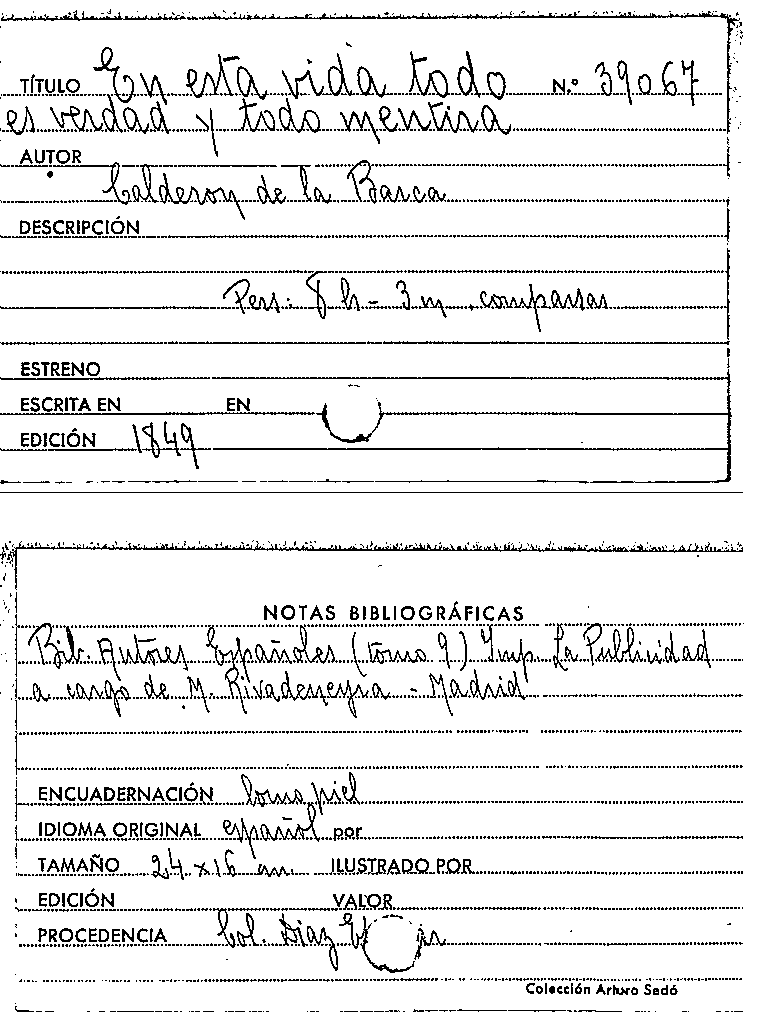 TÍTULO En esta vida todo N.º 39067
es verdad y todo mentira
AUTOR
Calderon de la Barca
DESCRIPCIÓN
Pers: 8 h - 3 m. comparsas
ESTRENO
ESCRITA EN EN
EDICIÓN 1849
NOTAS BIBLIOGRÁFICAS
Bib. Autores Españoles (tomo 9) Imp. La Publicidad
a cargo de M. Rivadeneyra - Madrid
ENCUADERNACIÓN lomo piel
IDIOMA ORIGINAL español por
TAMAÑO 24 x 16 cm. ILUSTRADO POR
EDICIÓN VALOR
PROCEDENCIA Col. Diaz
Colección Arturo Sedó